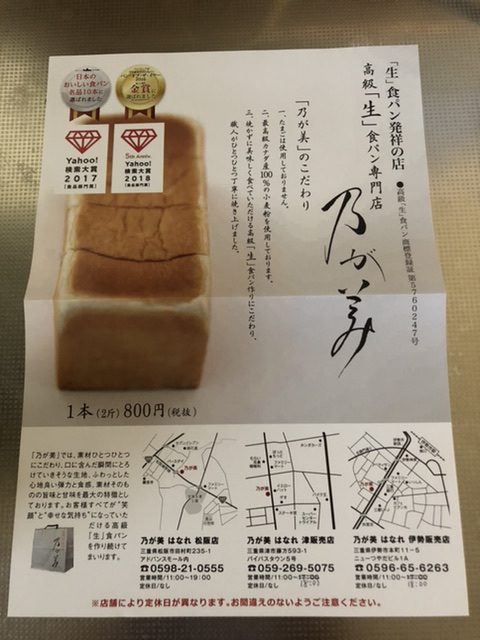 「生」食パン発祥の店
高級「生」食パン専門店
●高級「生」食パン 商標登録証 第5760247号
乃が美
「乃が美」のこだわり
一、たまごは使用しておりません。
二、最高級カナダ産100%の小麦粉を使用しております。
三、焼かずに美味しく食べていただける高級「生」食パン作りにこだわり、
職人がひとつひとつ丁寧に焼き上げました。
日本の
おいしい食パン
名品10本に
選ばれました
金賞に
選ばれました
Yahoo!
検索大賞
2017
【食品部門賞】
5th Anniv.
Yahoo!
検索大賞
2018
【食品部門賞】
1本(2斤) 800円(税抜)
「乃が美」では、素材ひとつひとつ
にこだわり、口に含んだ瞬間にとろ
けていきそうな生地、ふわっとした
心地良い弾力と食感、素材そのも
のの旨味と甘味を最大の特徴とし
ております。お客様すべてが"笑
顔"と"幸せな気持ち"になっていた
だける高級
「生」食パン
を作り続けて
まいります。
乃が美
乃が美
乃が美
乃が美
乃が美 はなれ 松阪店
三重県松阪市田村町235-1
アドバンスモール内
☎0598-21-0555
営業時間/11:00~19:00
定休日/なし
乃が美 はなれ 津販売店
三重県津市藤方593-1
バイパスタウン5号
☎059-269-5075
営業時間/11:00~17:00
定休日/なし 18:00
乃が美 はなれ 伊勢販売店
三重県伊勢市本町11-5
ニューつやだビル1A
☎0596-65-6263
営業時間/11:00~17:00
定休日/なし 18:00
※店舗により定休日が異なります。お間違えのないようご注意ください。